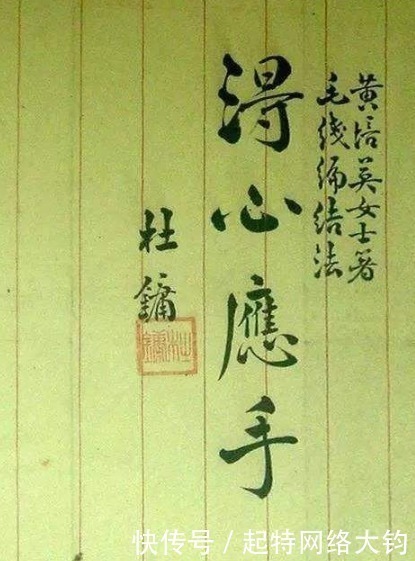 黄培英女士著
毛线编结法
得心應手
杜鏞
快传号／起特网络大钧